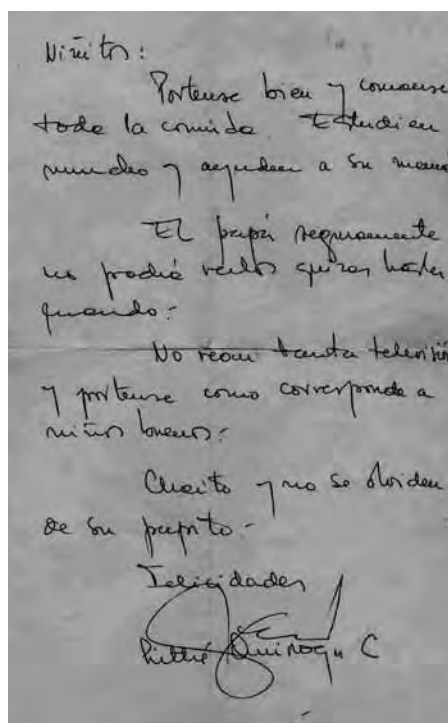 Niñitos:
Portense bien y comanse
toda la comida. Estudien
mucho y ayuden a su mamá
El papá seguramente
no podrá verlos quizas hasta
quando:-
No vean tanta televisión
y portense como corresponde a
niños buenos:-
Chaito y no se olviden
de su papito.-
Felicidades
Quiroga C